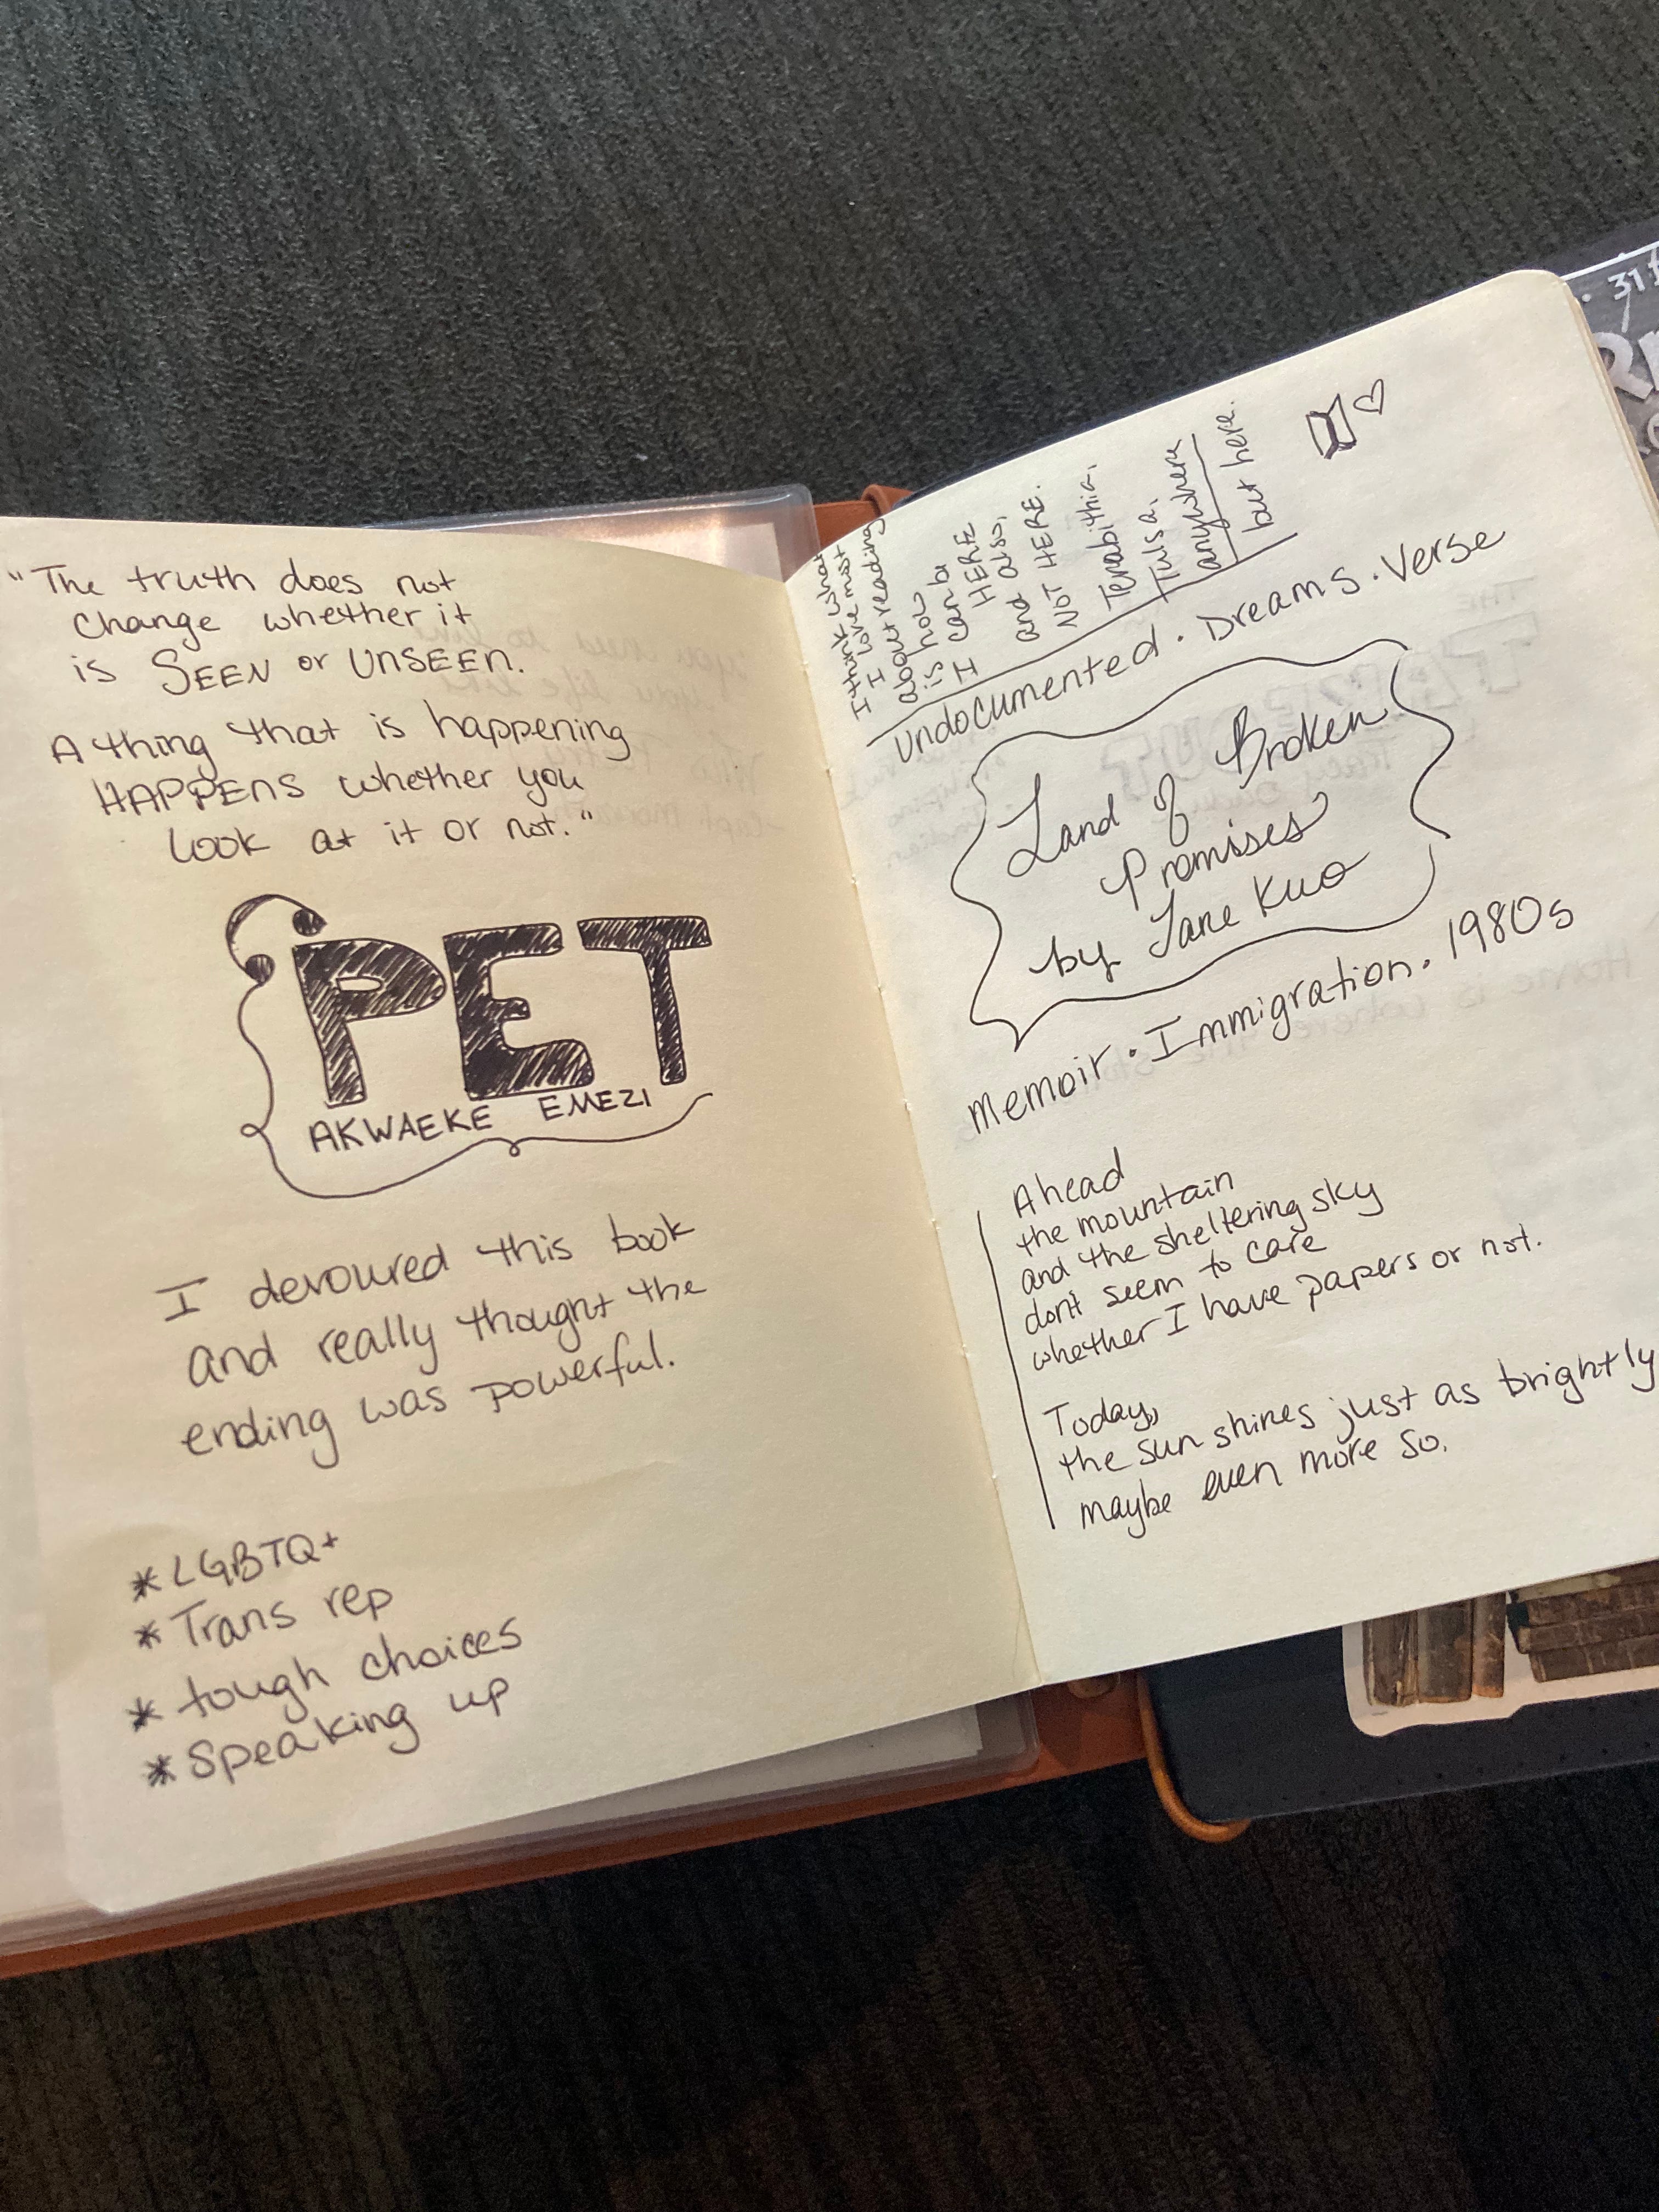 "The truth does not
change whether it
is SEEN or UNSEEN.
A thing that is happening
HAPPENS whether you
look at it or not."
PET
AKWAEKE EMEZI
I devoured this book
and really thought the
ending was powerful.
* LGBTQ+
* Trans rep
* tough choices
* Speaking up
I think what
I love most
about reading
is how
I can be
HERE
and also,
NOT HERE.
Terabithia.
Tulsa.
anywhere
but here.
Undocumented · Dreams · Verse
Land of Broken
Promises
by Jane Kuo
Memoir · Immigration · 1980s
Ahead
the mountain
and the sheltering sky
don't seem to care
whether I have papers or not.
Today,
the sun shines just as brightly
maybe even more so.
· 31